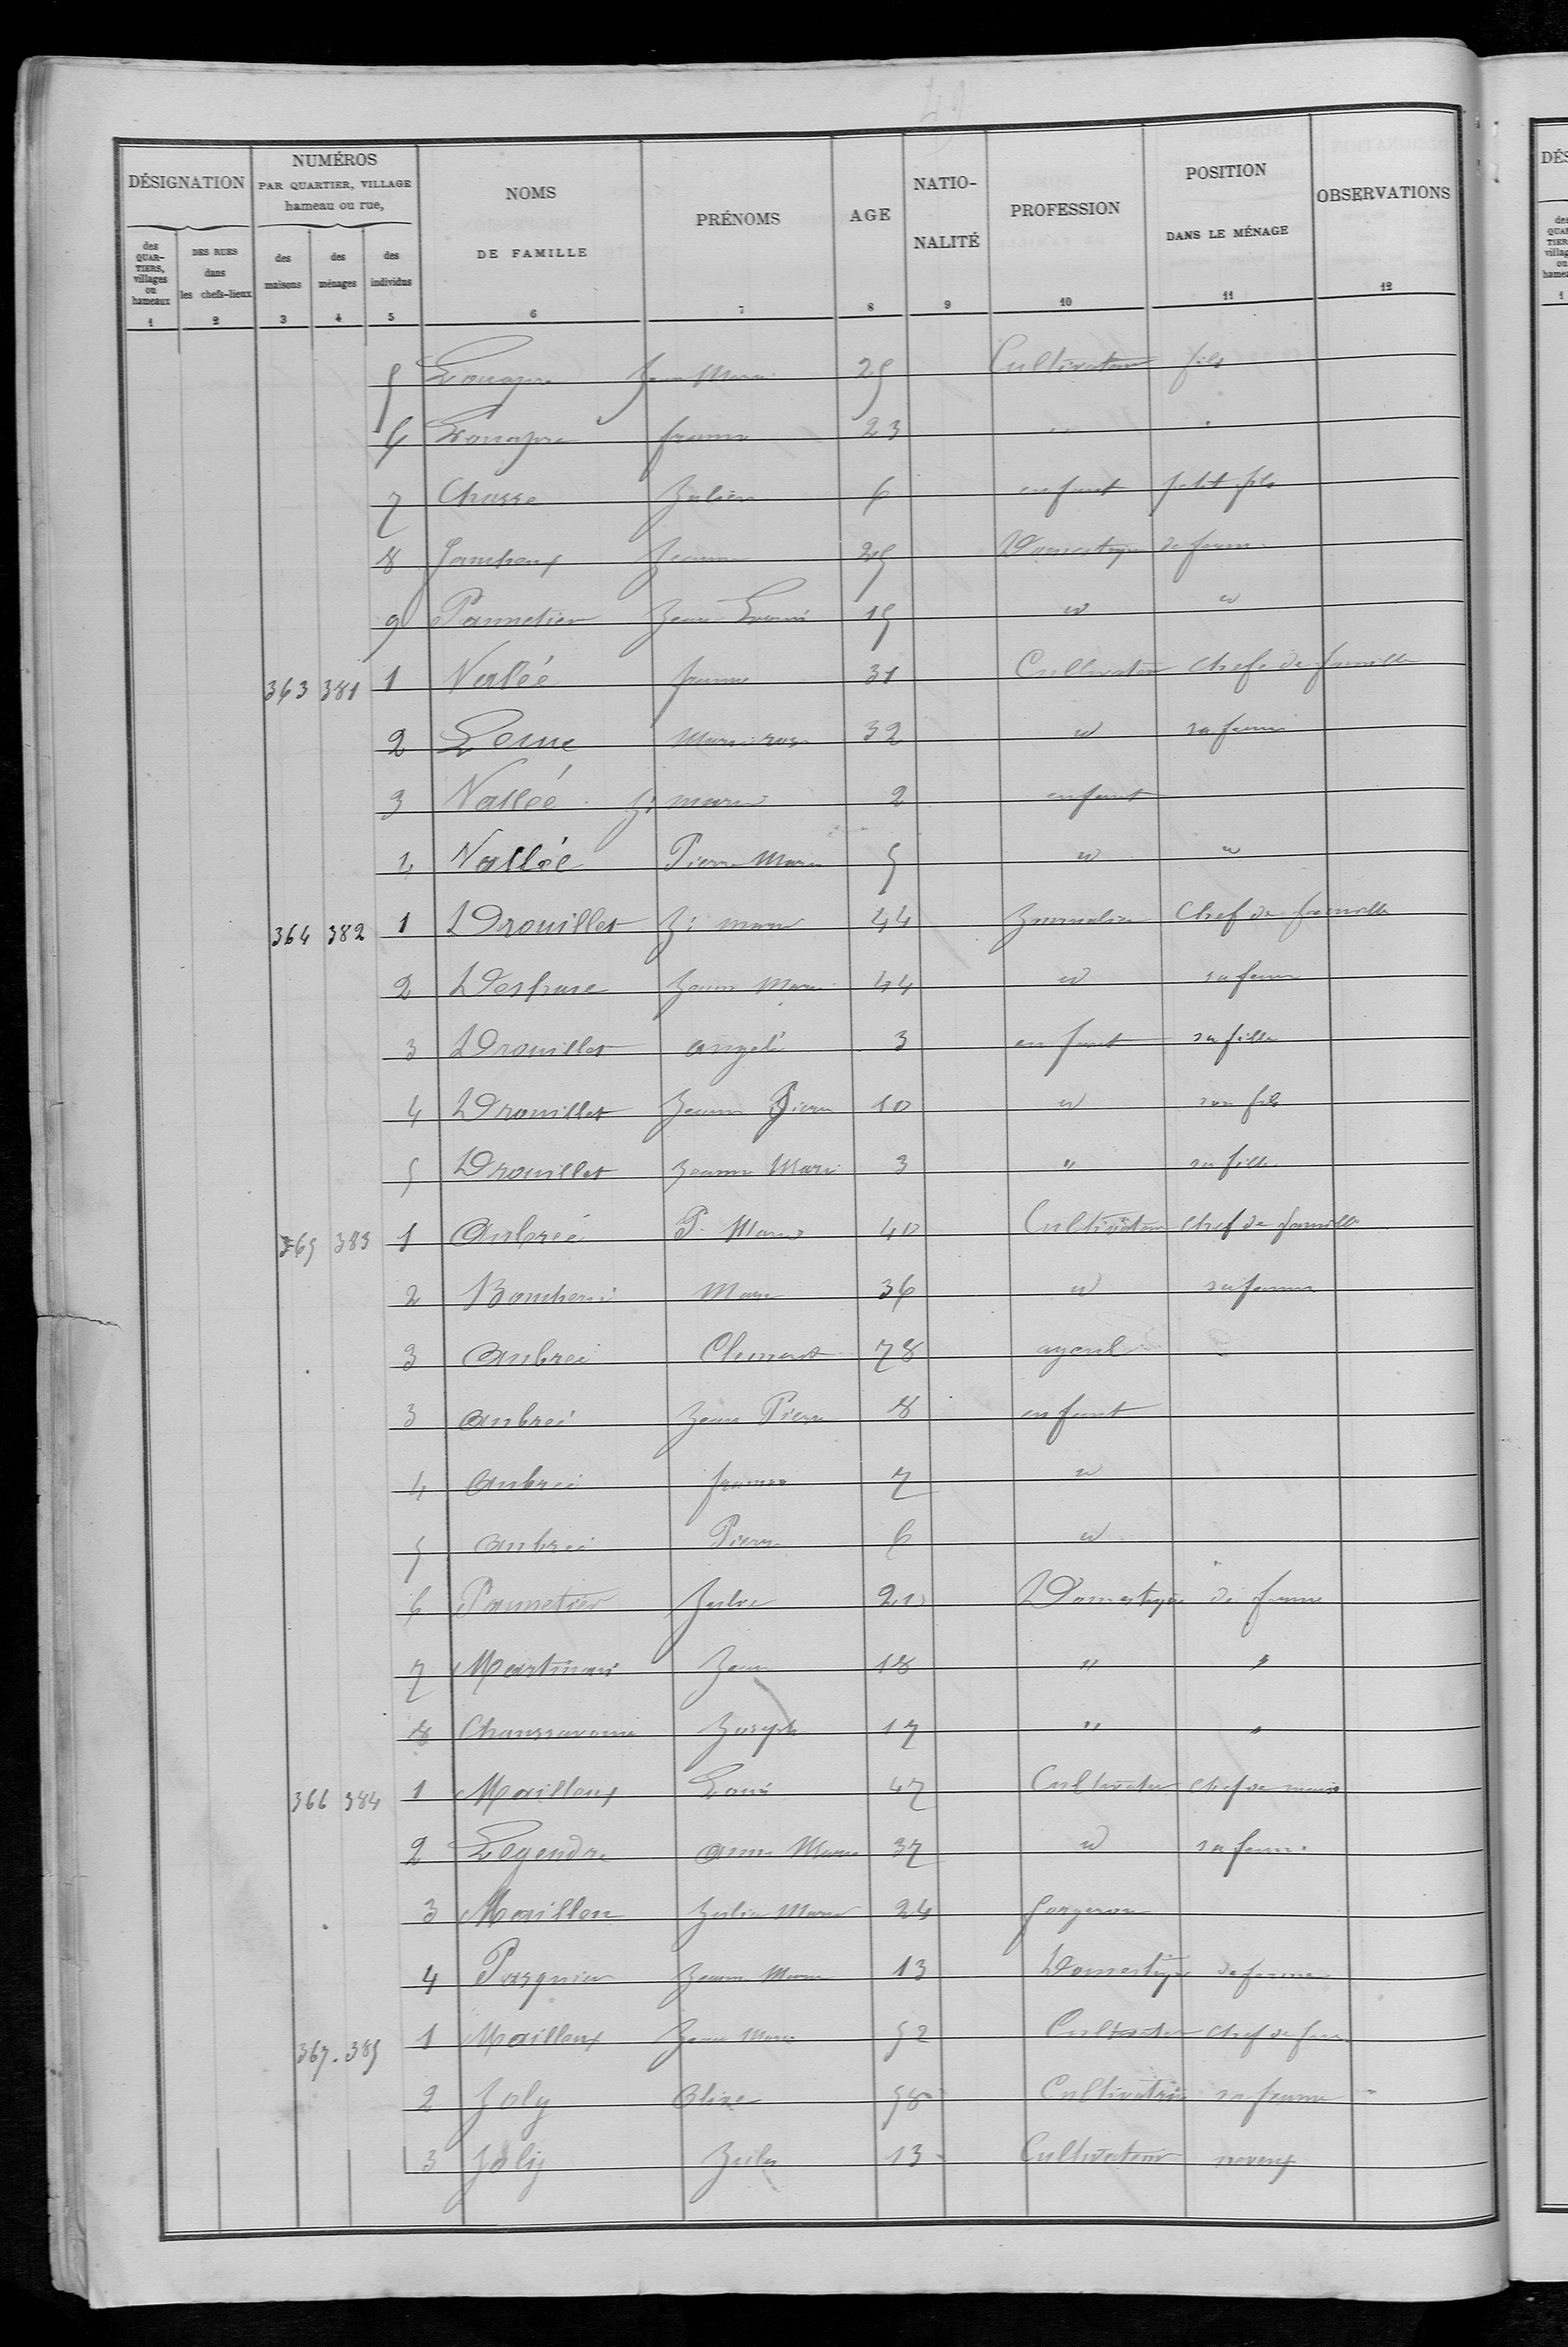 49
DÉSIGNATION
NUMÉROS
PAR QUARTIER, VILLAGE
hameau ou rue,
NOMS
DE FAMILLE
PRÉNOMS
AGE
NATIO-
NALITÉ
PROFESSION
POSITION
DANS LE MÉNAGE
OBSERVATIONS
des
QUAR-
TIERS,
villages
ou
hameaux
DES RUES
dans
les chefs-lieux
des
maisons
des
ménages
des
individus
1 2 3 4 5 6 7 8 9 10 11 12
5 Jean Marie 25 Cultivateur fils
6 23 " "
7 Chasse Julien 6 enfant petit fils
8 Jeanne 25 Domestique de ferme
9 Pannetier Jean Louis 15 " "
363 381 1 Vallée 31 Cultivateur Chefe de famille
2 Marie rose 32 " sa femme
3 Vallée Jn marie 2 enfant
4 Vallée Pierre Marie 5 " "
364 382 1 Drouillet Jn marie 44 Journalier Chef de famille
2 Jeanne Marie 44 " sa femme
3 Drouillet angelé 3 enfant sa fille
4 Drouillet Jeanne Pierre 10 " son fils
5 Drouillet Jeanne Marie 3 " sa fille
365 383 1 Aubrée P. Marie 40 Cultivateur Chef de famille
2 Marie 36 " sa femme
3 Aubreé Clement 78 ayeul
3 Aubreé Jean Pierre 8 enfant
4 Aubreé 7 "
5 Aubreé Pierre 6 "
6 Pannetier Julie Domestique de ferme
7 Jean 18 " "
8 Joseph 17 " "
366 384 1 Mailleux Louis 47 Cultivateur chef de
2 Legendre Anne Marie 37 " sa femme
3 Mailleu Julie Marie 24 forgeron
4 Pasquier Jeanne Marie 13 Domestique de ferme
367. 385 1 Mailleux Jean Marie 52 Cultivateur Chef de fam
2 Joly Olive 58 Cultivatrice sa femme "
3 Joly Jules 13 Cultivateur neveux